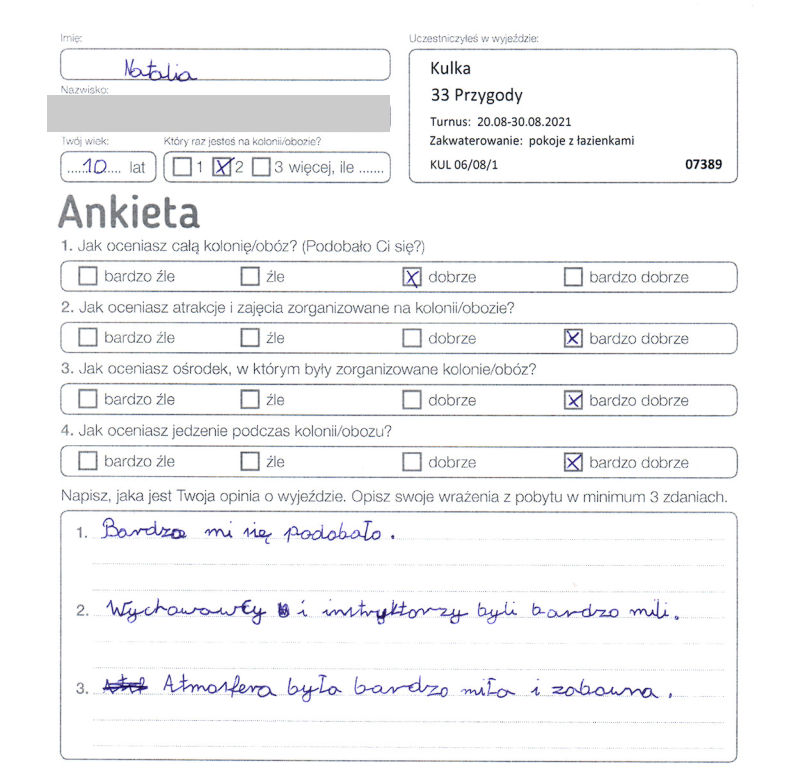 Imię:
Natalia
Nazwisko:
Twój wiek:
10 lat
Który raz jesteś na kolonii/obozie?
1 X 2 3 więcej, ile .......
Uczestniczyłeś w wyjeździe:
Kulka
33 Przygody
Turnus: 20.08-30.08.2021
Zakwaterowanie: pokoje z łazienkami
KUL 06/08/1 07389
Ankieta
1. Jak oceniasz całą kolonię/obóz? (Podobało Ci się?)
bardzo źle źle X dobrze bardzo dobrze
2. Jak oceniasz atrakcje i zajęcia zorganizowane na kolonii/obozie?
bardzo źle źle dobrze X bardzo dobrze
3. Jak oceniasz ośrodek, w którym były zorganizowane kolonie/obóz?
bardzo źle źle dobrze X bardzo dobrze
4. Jak oceniasz jedzenie podczas kolonii/obozu?
bardzo źle źle dobrze X bardzo dobrze
Napisz, jaka jest Twoja opinia o wyjeździe. Opisz swoje wrażenia z pobytu w minimum 3 zdaniach.
1. Bardzo mi się podobało.
2. Wychowawcy i instryktorzy byli bardzo mili.
3. Atmosfera była bardzo miła i zabawna.